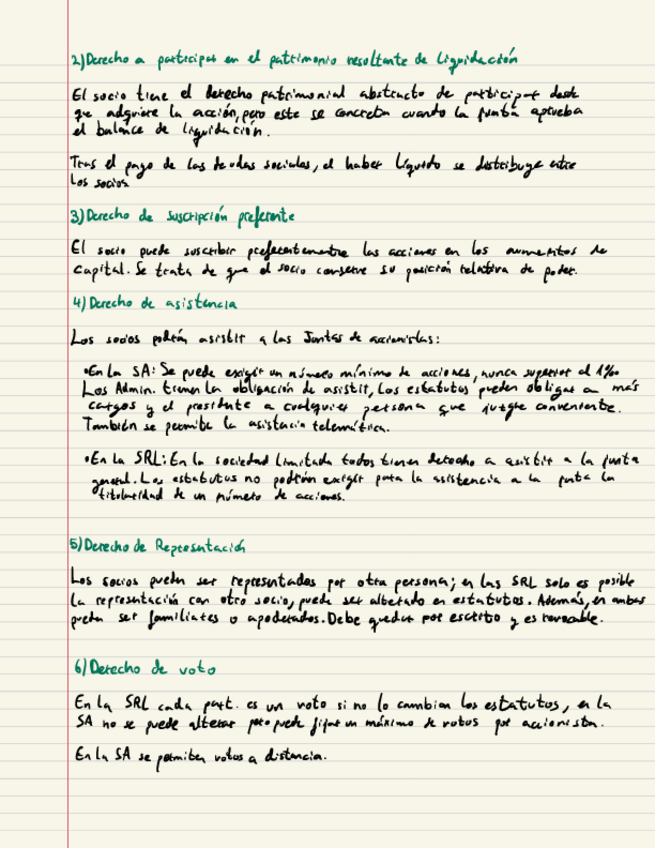 2) Derecho a participar en el patrimonio resultante de Liquidación
El socio tiene el derecho patrimonial abstracto de participar desde
que adquiere la acción, pero este se concreta cuando la junta aprueba
el balance de liquidación.
Tras el pago de las deudas sociales, el haber líquido se distribuye entre
los socios
3) Derecho de suscripción preferente
El socio puede suscribir preferentemente las acciones en los aumentos de
capital. Se trata de que el socio conserve su posición relativa de poder.
4) Derecho de asistencia
Los socios podrán asistir a las Juntas de accionistas:
•En la SA: Se puede exigir un número mínimo de acciones, nunca superior al 1‰
Los Admin. tienen la obligación de asistir, los estatutos pueden obligar a más
cargos y el presidente a cualquier persona que juzgue conveniente.
También se permite la asistencia telemática.
•En la SRL: En la sociedad limitada todos tienen derecho a asistir a la junta
general. Los estatutos no podrán exigir para la asistencia a la junta la
titularidad de un número de acciones.
5) Derecho de Representación
Los socios pueden ser representados por otra persona; en las SRL solo es posible
la representación con otro socio, puede ser alterado en estatutos. Además, en ambas
pueden ser familiares o apoderados. Debe quedar por escrito y es revocable.
6) Derecho de voto
En la SRL cada part. es un voto si no lo cambian los estatutos, en la
SA no se puede alterar pero puede fijar un máximo de votos por accionista.
En la SA se permiten votos a distancia.